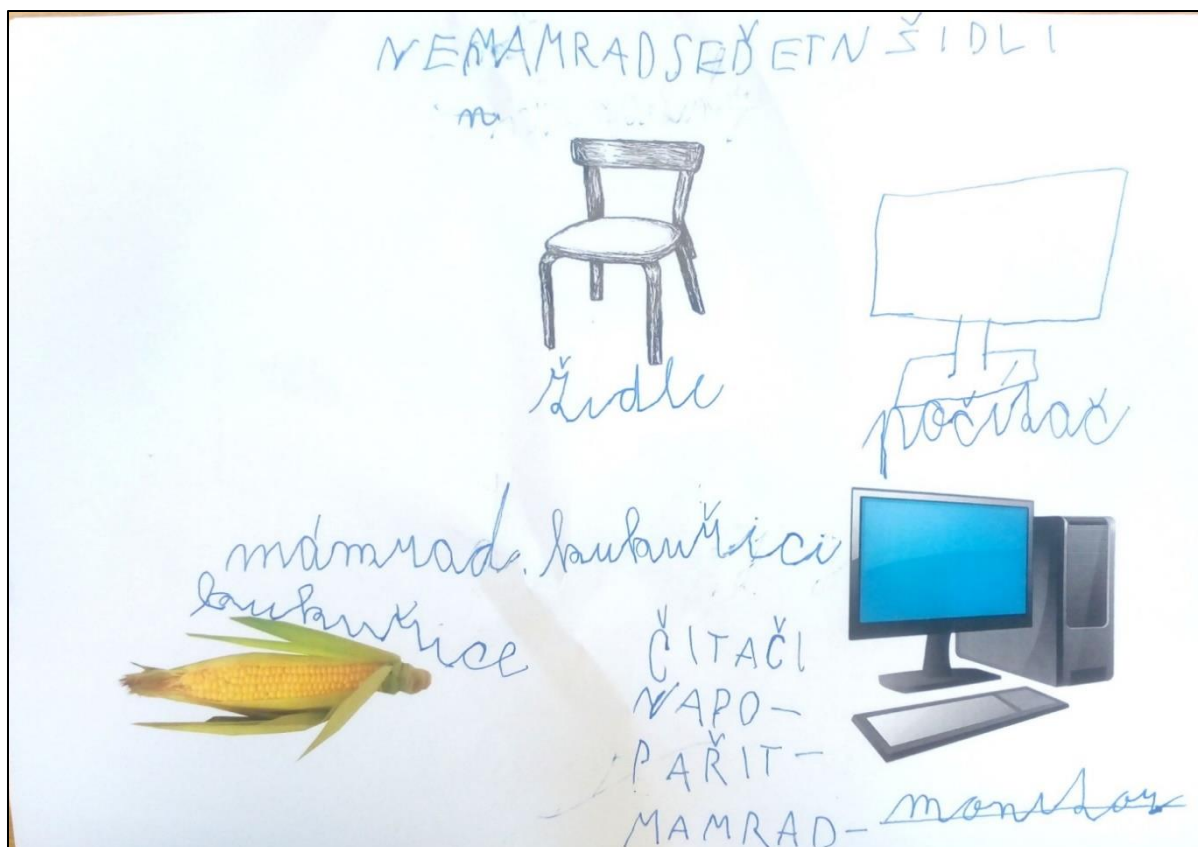 NEMAMRADSEĎETNŽIDLI
n
židle
počítač
mámrad. kukuřici
kukuřice
ČITAČI
NAPO-
PAŘIT-
MAMRAD-
monitor